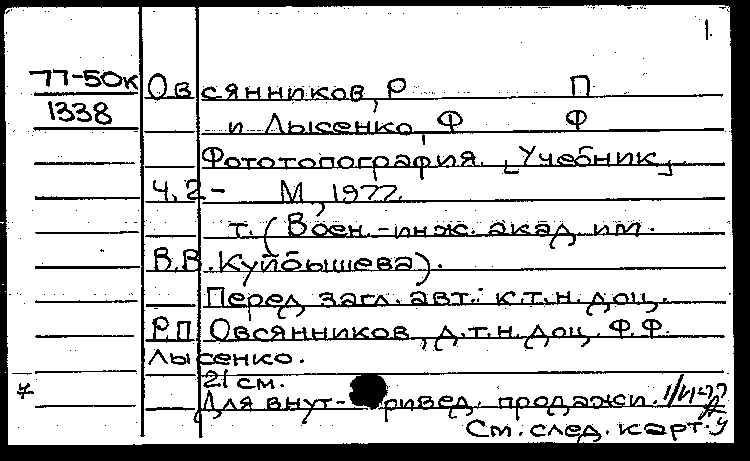 1.
77-50к Овсянников, Р П
1338 и Лысенко, Ф Ф
Фототопография. [Учебник].
Ч. 2- М, 1977.
т. (Воен.-инж. акад. им.
В.В. Куйбышева).
Перед загл. авт.: к.т.н. доц.
Р.П. Овсянников, д.т.н. доц. Ф.Ф.
Лысенко.
21 см.
Для внут- ривед. продажи.
См. след. карт.